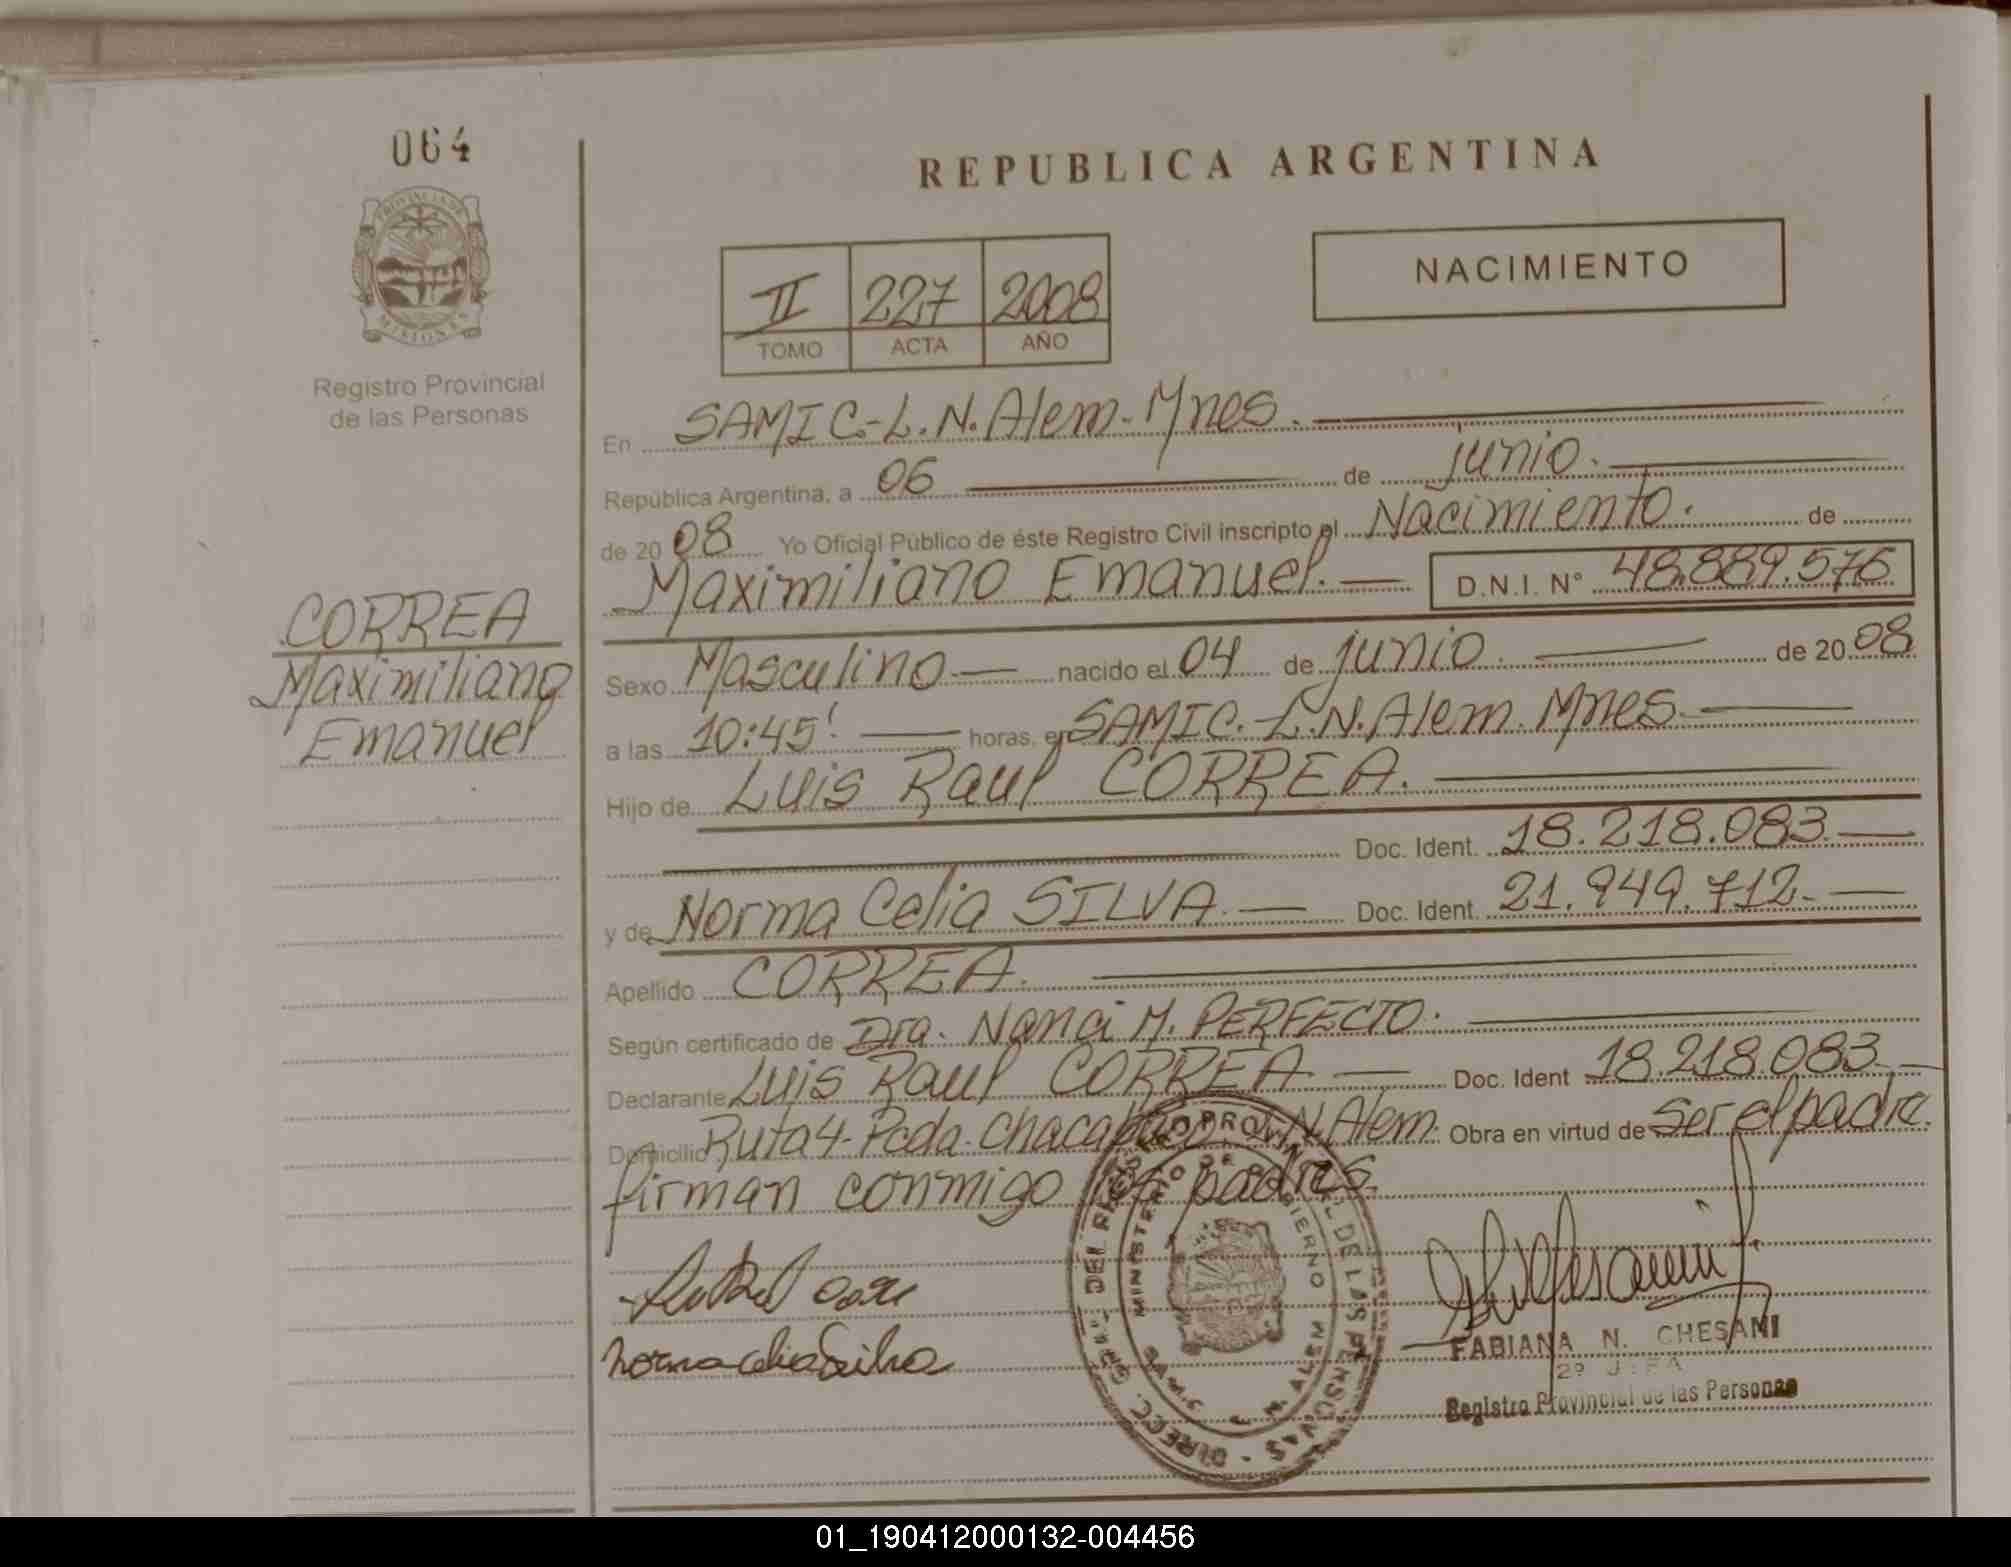 064
PROVINCIA DE
MISIONES
Registro Provincial
de las Personas
CORREA
Maximiliano
Emanuel
REPUBLICA ARGENTINA
II 227 2008
TOMO ACTA AÑO
NACIMIENTO
En SAMIC-L.N.Alem-Mnes.
República Argentina, a 06 de junio.
de 2008 Yo Oficial Público de éste Registro Civil inscripto el Nacimiento. de
Maximiliano Emanuel. D.N.I. N° 48.889.576
Sexo Masculino nacido el 04 de junio. de 2008
a las 10:45' horas, en SAMIC-L.N.Alem. Mnes.
Hijo de Luis Raul CORREA.
Doc. Ident. 18.218.083
y de Norma Celia SILVA. Doc. Ident. 21.949.712.
Apellido CORREA.
Según certificado de Dra. Nanci M. PERFECTO.
Declarante Luis Raul CORREA Doc. Ident 18.218.083
Domicilio Ruta 4-Pcda. Chacabuco L.N.Alem. Obra en virtud de ser el padre.
firman conmigo los padres.
Norma Celia Silva
FABIANA N. CHESANI
2º JEFA
Registro Provincial de las Personas
01_190412000132-004456